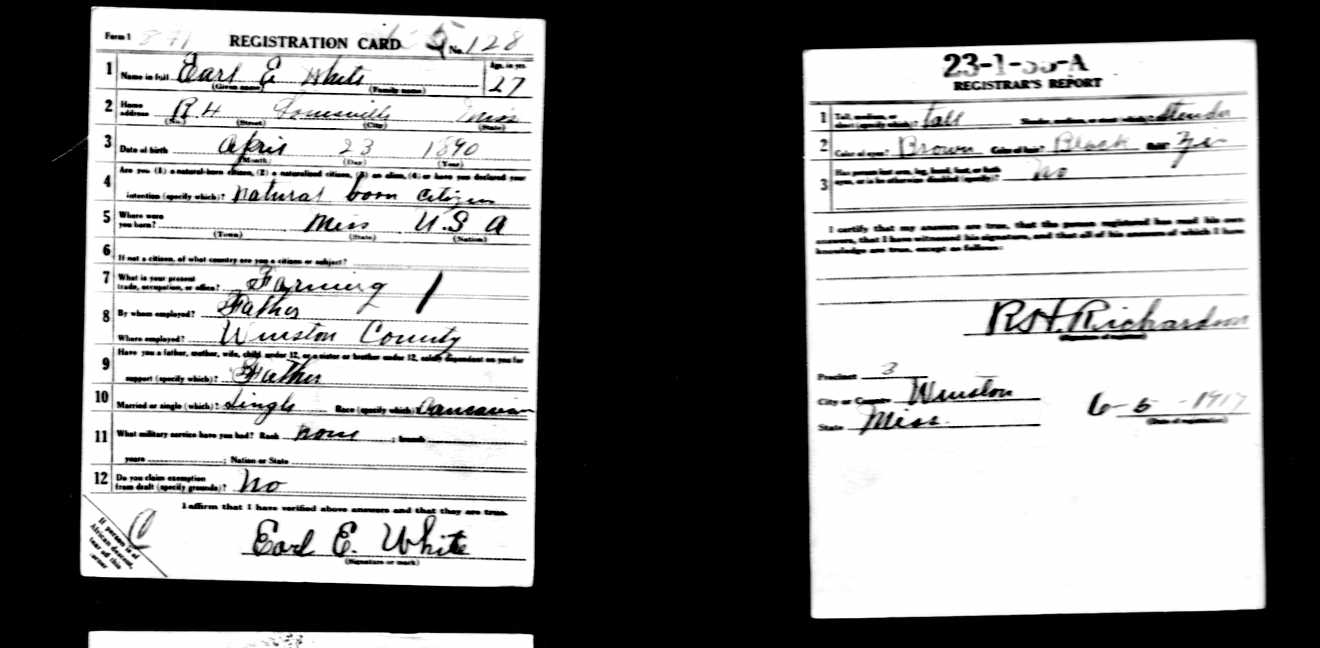 Form 1 REGISTRATION CARD No. 128
1 Name in full Earl E White Age, in yrs. 27
(Given name) (Family name)
2 Home address R. 4 Louisville Miss
(No.) (Street) (City) (State)
3 Date of birth April 23 1890
(Month) (Day) (Year)
4 Are you (1) a natural-born citizen, (2) a naturalized citizen, (3) an alien, (4) or have you declared your
intention (specify which)? Natural born Citizen
5 Where were you born? Miss U.S A
(Town) (State) (Nation)
6 If not a citizen, of what country are you a citizen or subject?
7 What is your present trade, occupation, or office? Farming
8 By whom employed? Father
Where employed? Winston County
9 Have you a father, mother, wife, child under 12, or a sister or brother under 12, solely dependent on you for
support (specify which)? Father
10 Married or single (which)? Single Race (specify which)?
11 What military service have you had? Rank none ; branch ;
years ; Nation or State
12 Do you claim exemption from draft (specify grounds)? No
I affirm that I have verified above answers and that they are true.
Earl E. White
(Signature or mark)
If person is of
African descent,
tear off this
corner
23-1-
REGISTRAR'S REPORT
1 Tall, medium, or short (specify which)? tall Slender, medium, or stout (which)? Slender
2 Color of eyes? Brown Color of hair? Black
3 Has person lost arm, leg, hand, foot, or both eyes, or is he otherwise disabled (specify)? No
I certify that my answers are true, that the person registered has read his own
answers, that I have witnessed his signature, and that all of his answers of which I have
knowledge are true, except as follows:
R.H. Richardson
(Signature of registrar)
Precinct 3
City or County Winston
State Miss. 6-5-1917
(Date of registration)